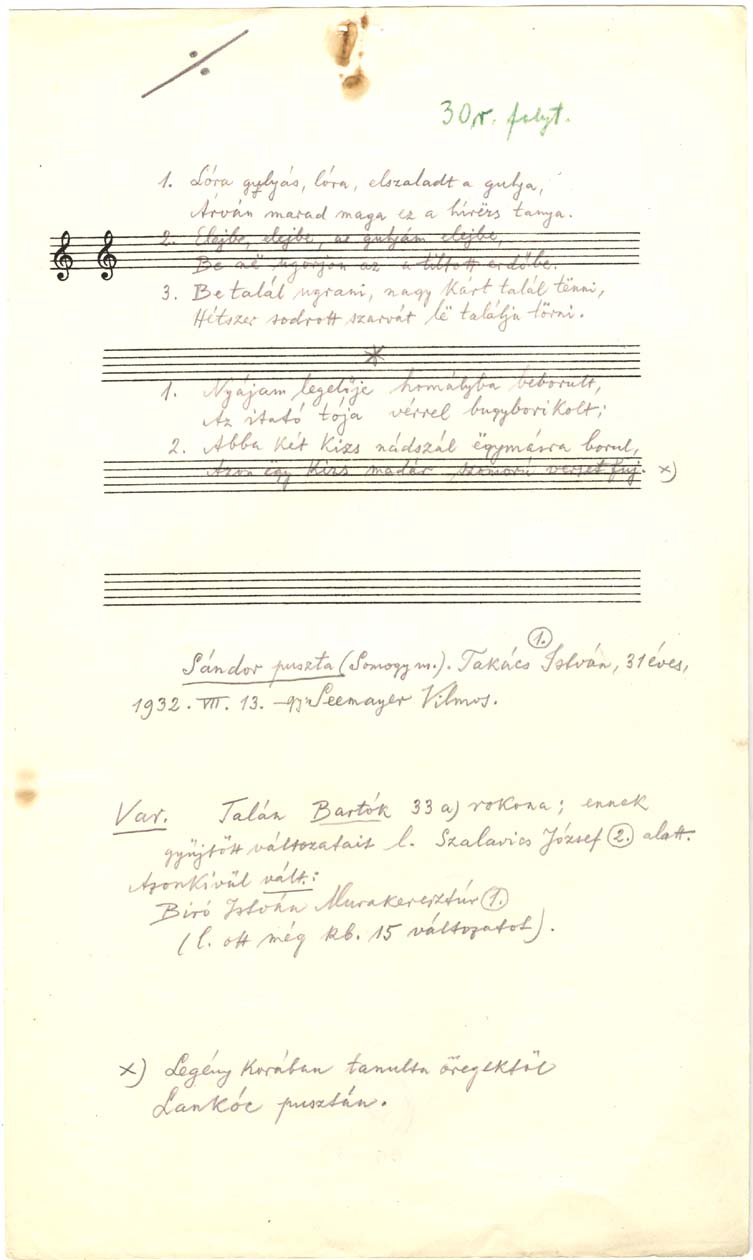 30r. folyt.
1. Lóra gulyás, lóra, elszaladt a gulya,
Árván marad maga ez a hírës tanya.
2. Elejbe, elejbe, az gulyám elejbe,
Be në ugorjon az a tiltott erdőbe.
3. Be talál ugrani, nagy kárt talál tënni,
Hétszer sodrott szarvát lë találja törni.
*
1. Nyájam legelője homályba beborult,
Az itató tója vérrel bugyborikolt;
2. Abba két kizs nádszál ëgymásra borul,
Azon ëgy kizs madár szomorú verset fuj. x)
Sándor puszta (Somogy m.). Takács István, 31 éves, 1.
1932. VII. 13. Seemayer Vilmos.
Var. Talán Bartók 33 a) rokona; ennek
gyüjtött változatait l. Szalavics József 2. alatt.
Azonkívül vált.:
Biró István Murakeresztúr 1.
(l. ott még kb. 15 változatot).
x) Legény korában tanulta öregektől
Lankóc pusztán.